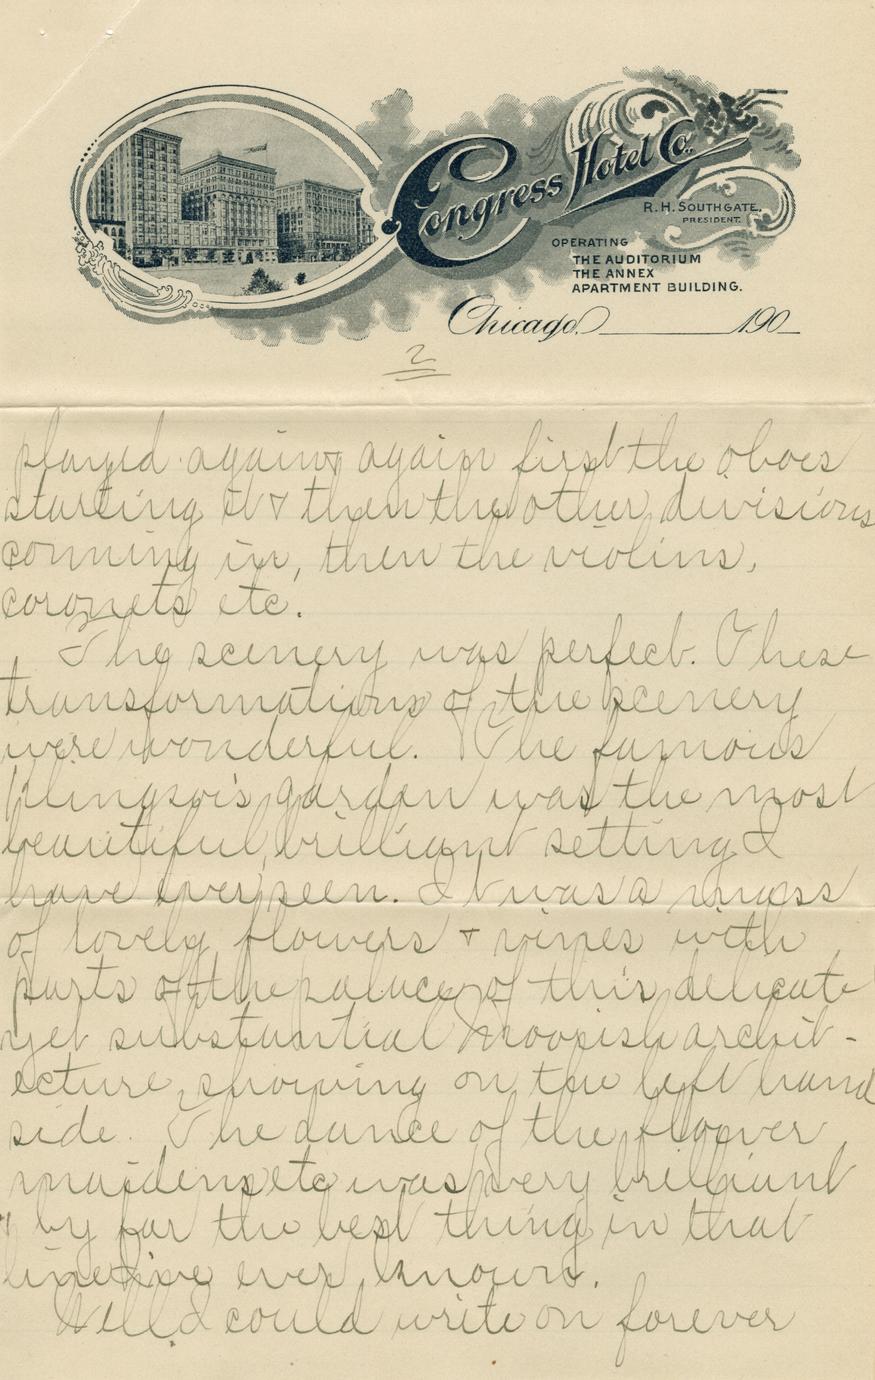 Congress Hotel Co.
R. H. SOUTHGATE,
PRESIDENT.
OPERATING
THE AUDITORIUM
THE ANNEX
APARTMENT BUILDING.
Chicago, 190
2
played again & again first the oboes
starting it & then the other divisions
comming in, then the violins,
coronets etc.
The scenery was perfect. These
transformations of the scenery
were wonderful. The famous
Klingsor's garden was the most
beautiful, brilliant setting I
have ever seen. It was a mass
of lovely flowers & vines with
parts of the palace of this delicate
yet substantial Moorish archit-
ecture, showing on the left hand
side. The dance of the flower
maidens etc was very brilliant
by far the best thing in that
line I've ever known.
Well I could write on forever